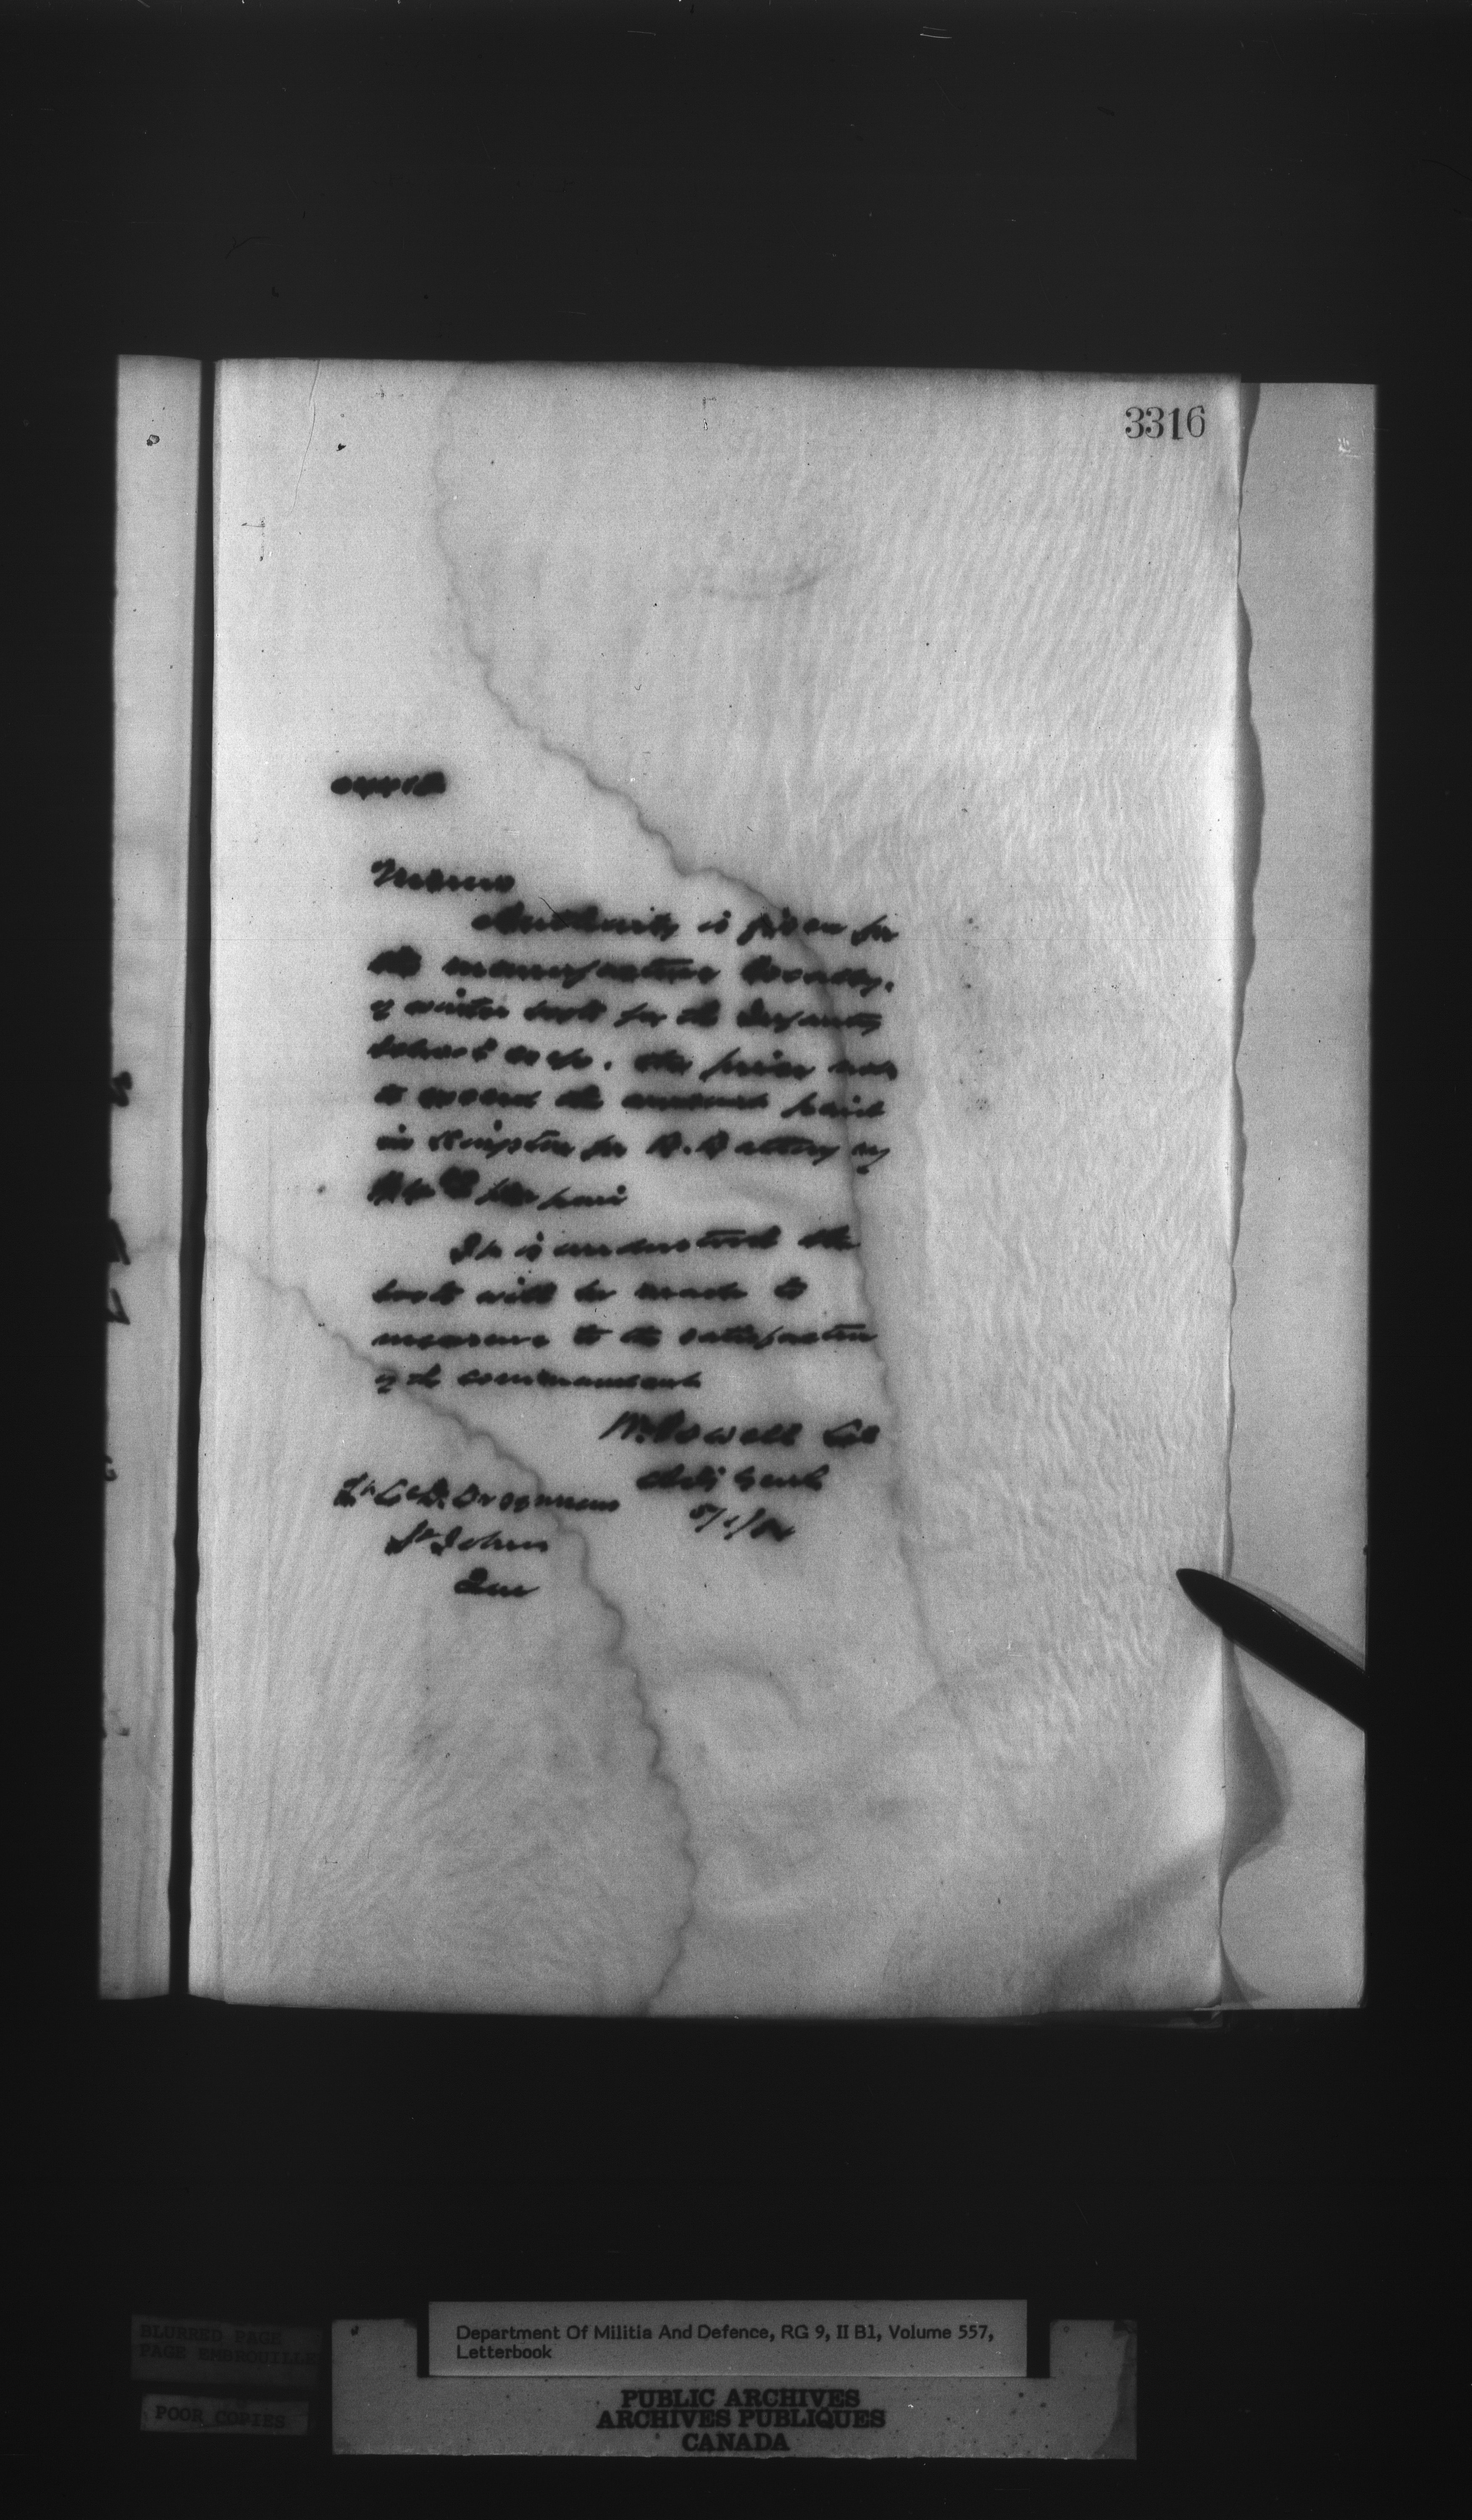 3316
Memo
Authority is given for
the manufacture locally,
of winter boots for the Infantry
School Corps. The price not
to exceed the amount paid
in Kingston for A. Battery
pair
It is understood the
boots will be made to
measure to the satisfaction
of the commandant
W. Powell Col
Adj Genl
5/1/84
Lt Col
St Johns
Que
BLURRED PAGE
PAGE EMBROUILLE
POOR COPIES
Department Of Militia And Defence, RG 9, II B1, Volume 557,
Letterbook
PUBLIC ARCHIVES
ARCHIVES PUBLIQUES
CANADA